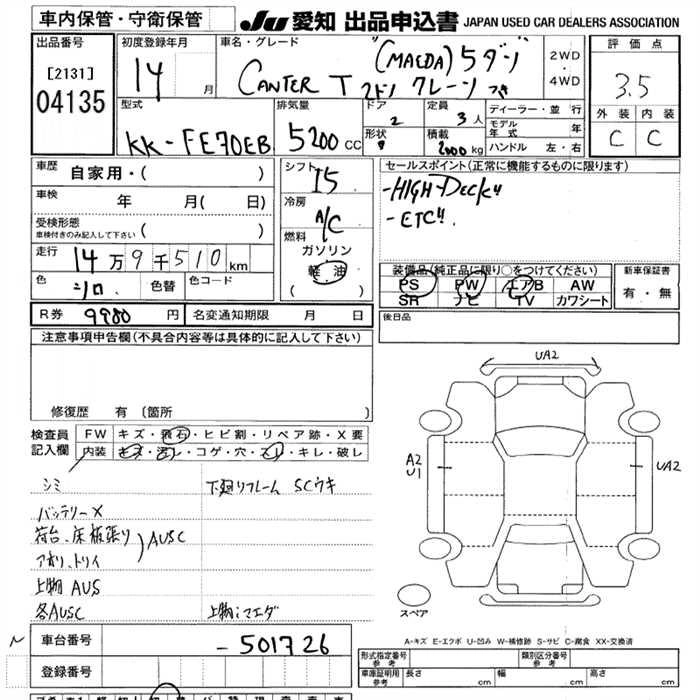 車内保管・守衛保管
JU 愛知 出品申込書 JAPAN USED CAR DEALERS ASSOCIATION
出品番号 初度登録年月 車名・グレード 評価点
[2131] 14 月 CANTER T "(MAEDA) 5ダン 2WD・4WD 3.5
04135 2トン クレーン
型式 排気量 ドア 定員 ディーラー・並 行 外装 内装
KK-FE70EB 5200 CC 2 3 人 モデル年式 年 C C
形状 積載 2000 kg ハンドル 左・右
車歴 自家用・( ) シフト I5 セールスポイント(正常に機能するものに限ります)
車検 年 月( 日) 冷房 A/C -HIGH DECK"
受検形態 車検付きのみ記入して下さい ( ) 燃料 -ETC"
走行 14万9千510km ガソリン
軽油
( )
色 シロ 色替 色コード
装備品(純正品に限り○をつけてください) 新車保証書
PS PW エアB AW 有・無
SR ナビ TV カワシート
R券 9980 円 名変通知期限 月 日 後日品
注意事項申告欄(不具合内容等は具体的に記入して下さい)
修復歴 有 (箇所 )
検査員記入欄 FW キズ・飛石・ヒビ割・リペア跡・X要
内装 キズ・汚レ・コゲ・穴・スレ・キレ・破レ
シミ 下廻りフレーム SCウキ
バッテリーX
荷台、床板張り
アオリ、トリイ AUSC
上物 AUS
各AUSC 上物:マエダ
UA2
A2
U1
UA2
スペア
A-キズ E-エクボ U-凹み W-補修跡 S-サビ C-腐食 XX-交換済
N 車台番号 -501726
登録番号
形式指定番号 参考 類別区分番号 参考
車庫証明用 参考 長さ cm 幅 cm 高さ cm